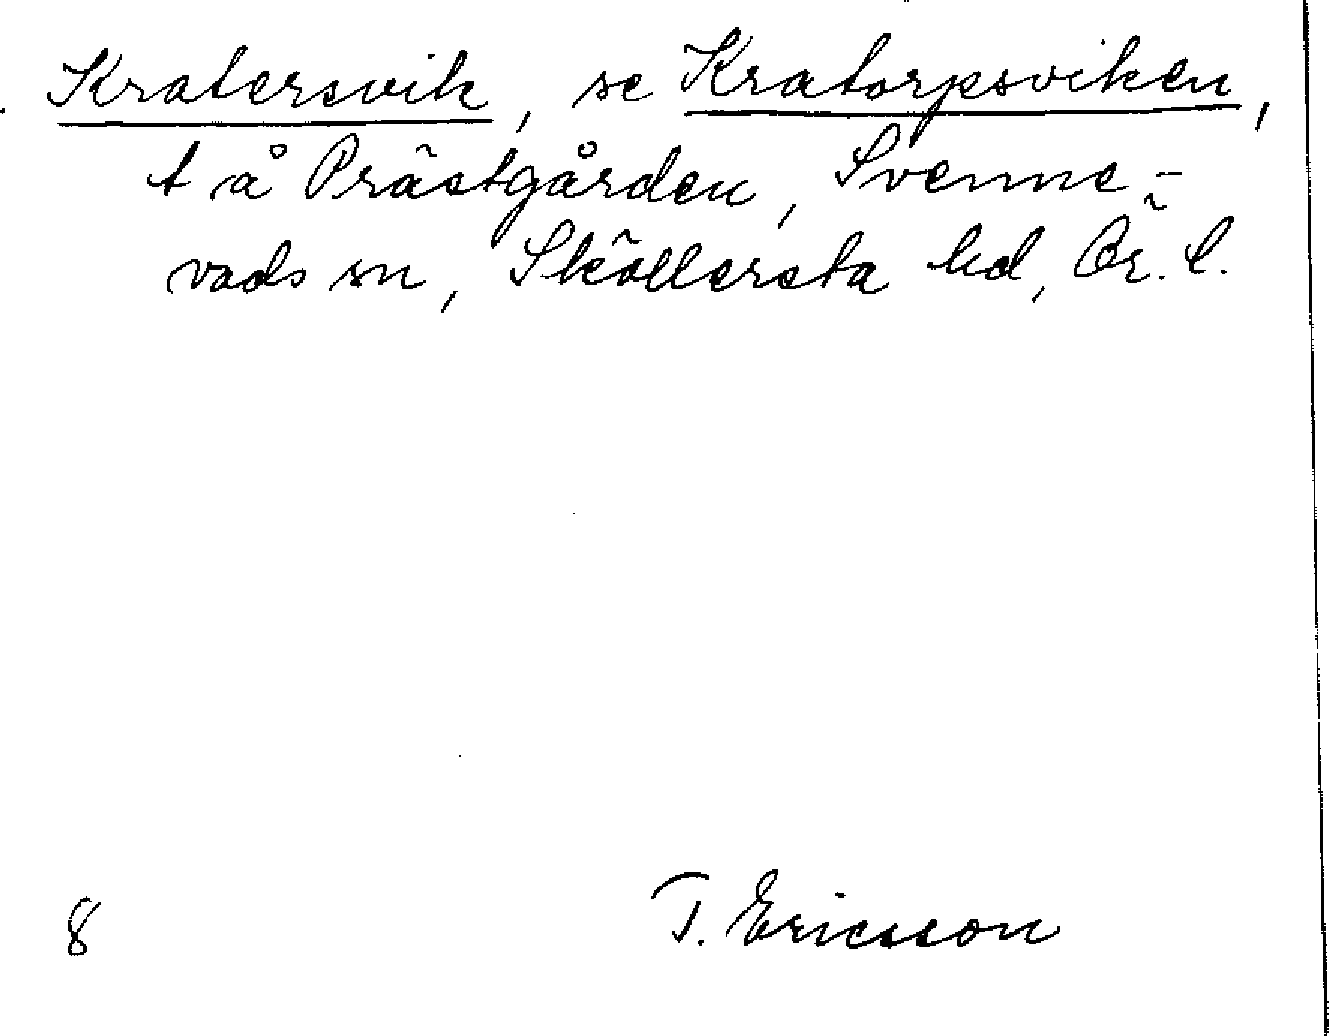 Kratersvik, se Kratorpsviken,
t å Prästgården, Svenne-
vads sn, Sköllersta hd, Ör. l.
8
T. Ericsson